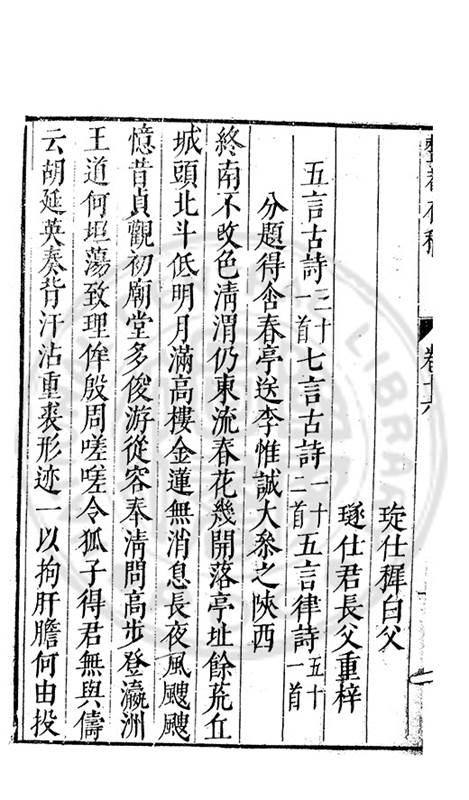 整菴存稿 卷十六
珽仕穉白父
璲仕君長父重梓
五言古詩三十一首七言古詩一十二首五言律詩五十一首
分題得含春亭送李惟誠大叅之陜西
終南不改色清渭仍東流春花幾開落亭址餘荒丘
城頭北斗低明月滿高樓金蓮無消息長夜風颼颼
憶昔貞觀初廟堂多俊游從容奉清問高步登瀛洲
王道何坦蕩致理侔殷周嗟嗟令狐子得君無與儔
云胡延英奏背汗沾重裘形迹一以拘肝膽何由投